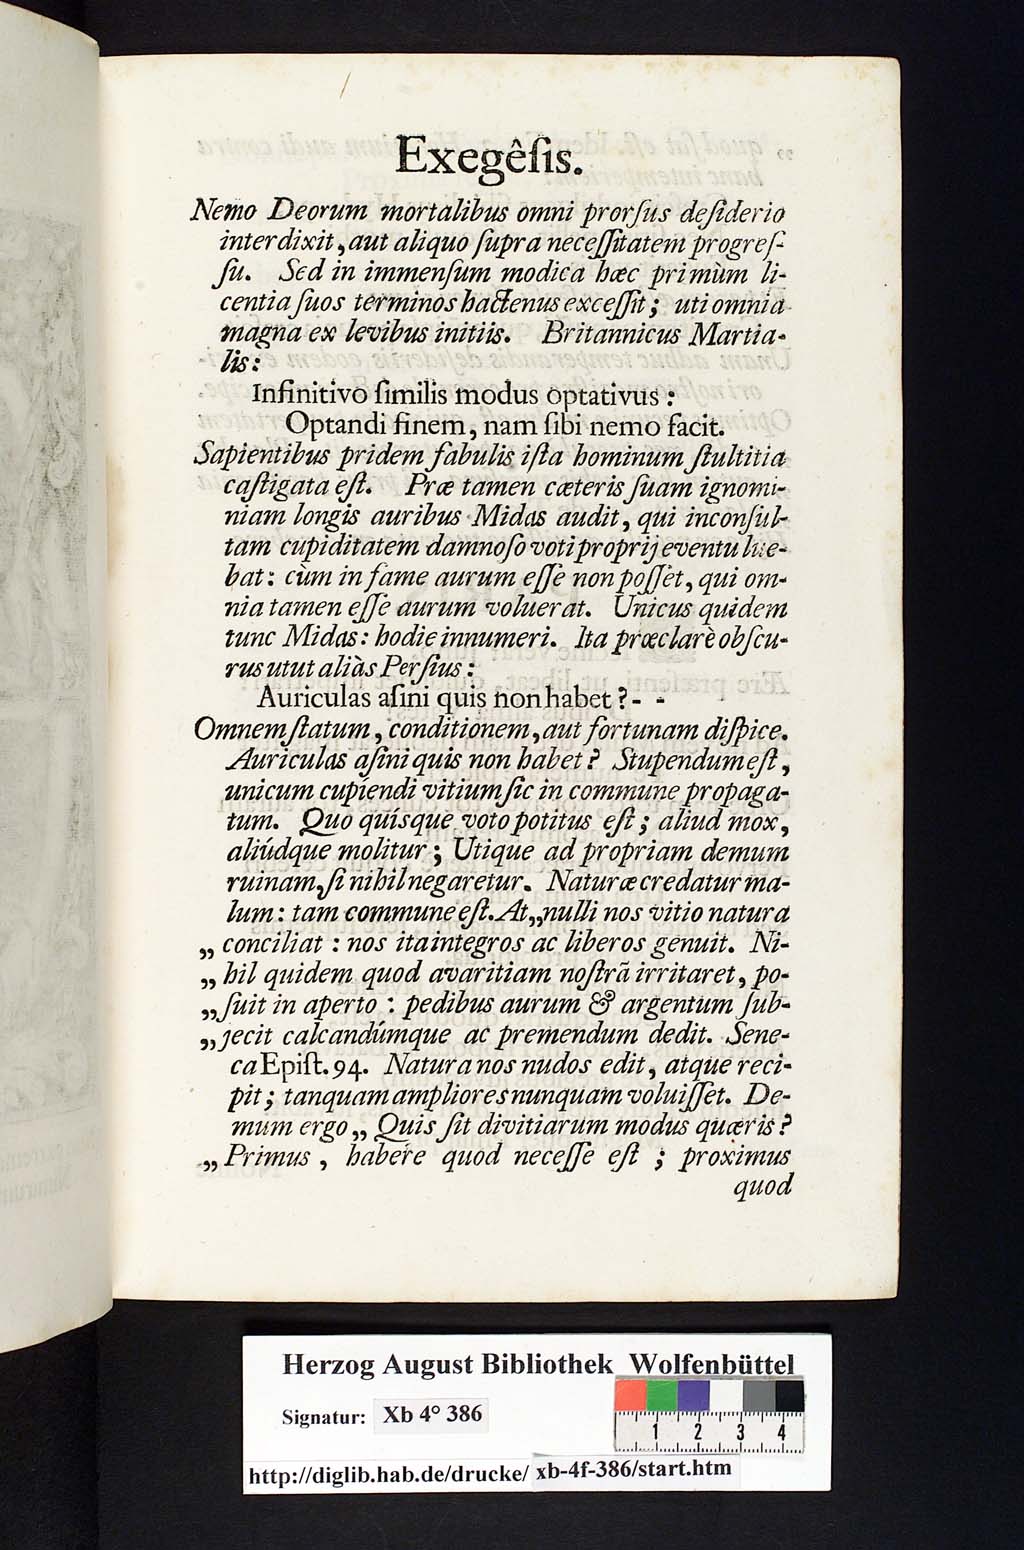 Exegêſis.
Nemo Deorum mortalibus omni prorſus deſiderio
interdixit, aut aliquo ſupra neceſſitatem progreſ-
ſu. Sed in immenſum modica hæc primùm li-
centia ſuos terminos hactenus exceſſit; uti omnia
magna ex levibus initiis. Britannicus Martia-
lis:
Infinitivo ſimilis modus optativus:
Optandi finem, nam ſibi nemo facit.
Sapientibus pridem fabulis iſta hominum ſtultitia
caſtigata eſt. Præ tamen cæteris ſuam ignomi-
niam longis auribus Midas audit, qui inconſul-
tam cupiditatem damnoſo voti proprij eventu lue-
bat: cùm in fame aurum eſſe non poſſet, qui om-
nia tamen eſſe aurum voluerat. Unicus quidem
tunc Midas: hodie innumeri. Ita præclarè obſcu-
rus utut aliàs Perſius:
Auriculas aſini quis non habet? - -
Omnem ſtatum, conditionem, aut fortunam diſpice.
Auriculas aſini quis non habet? Stupendum eſt,
unicum cupiendi vitium ſic in commune propaga-
tum. Quo quíſque voto potitus eſt; aliud mox,
aliúdque molitur; Utique ad propriam demum
ruinam, ſi nihil negaretur. Naturæ credatur ma-
lum: tam commune eſt. At „nulli nos vitio natura
„ conciliat: nos ita integros ac liberos genuit. Ni-
„ hil quidem quod avaritiam noſtrã irritaret, po-
„ ſuit in aperto: pedibus aurum & argentum ſub-
„ jecit calcandúmque ac premendum dedit. Sene-
ca Epiſt. 94. Natura nos nudos edit, atque reci-
pit; tanquam ampliores nunquam voluiſſet. De-
mum ergo „ Quis ſit divitiarum modus quæris?
„ Primus, habére quod neceſſe eſt; proximus
quod
Herzog August Bibliothek Wolfenbüttel
Signatur: Xb 4° 386
1 2 3 4
http://diglib.hab.de/drucke/ xb-4f-386/start.htm